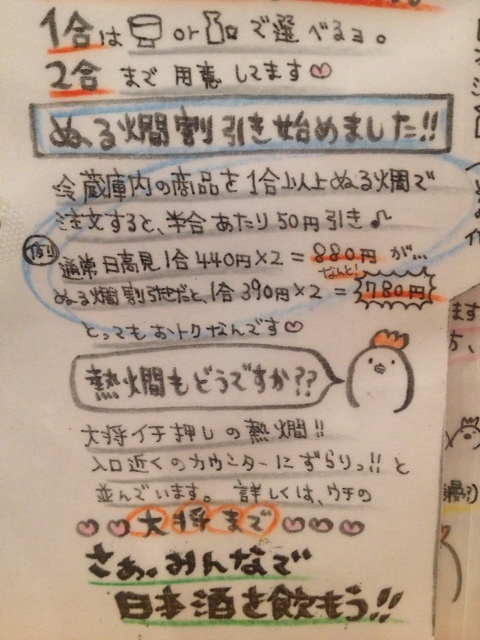 1合は or で選べるョ。
2合まで用意してます♡
ぬる燗割引き始めました!!
冷蔵庫内の商品を1合以上ぬる燗で
注文すると、半合あたり50円引き♪
例 通常日高見1合440円×2＝880円が…
なんと!
ぬる燗割引きだと、1合390円×2＝780円
とってもおトクなんです♡
熱燗もどうですか??
大将イチ押しの熱燗!!
入口近くのカウンターにずらりっ!!と
並んでいます。詳しくは、ウチの
♡♡大将まで♡♡♡
さぁ、みんなで
日本酒を飲もう!!